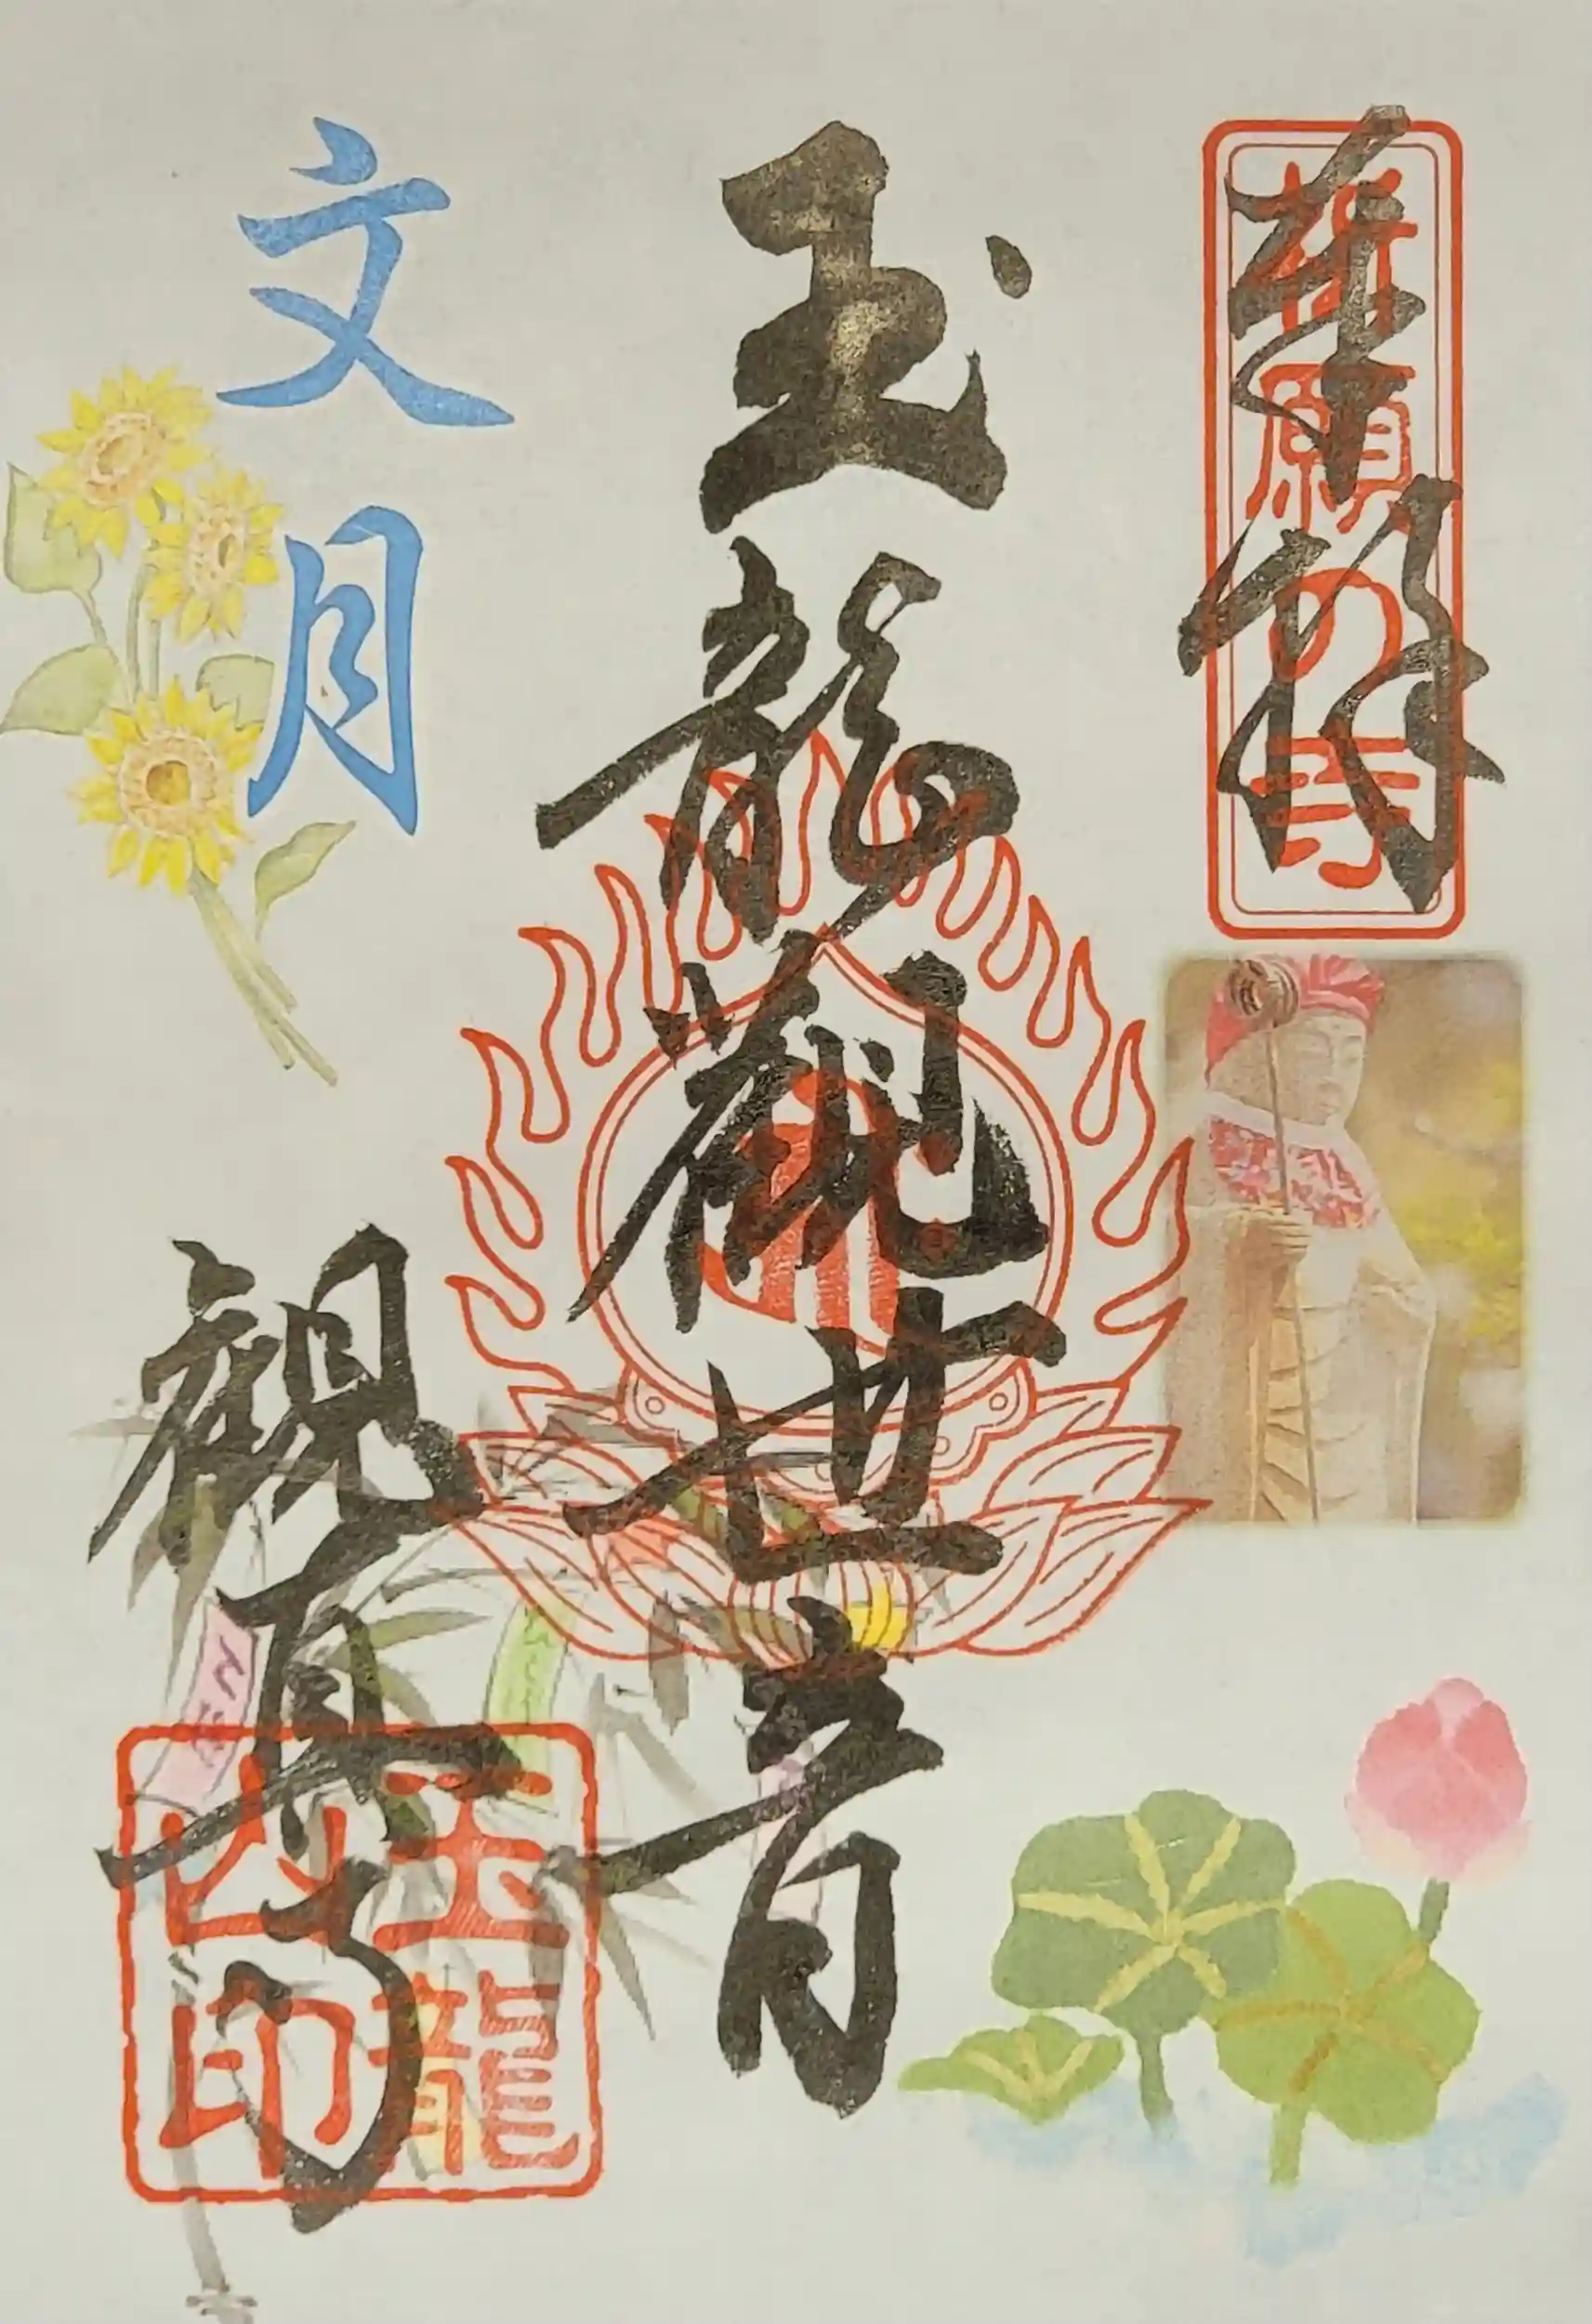 奉拝
祈願の寺
玉龍觀世音
文月
観真寺
玉龍
山印